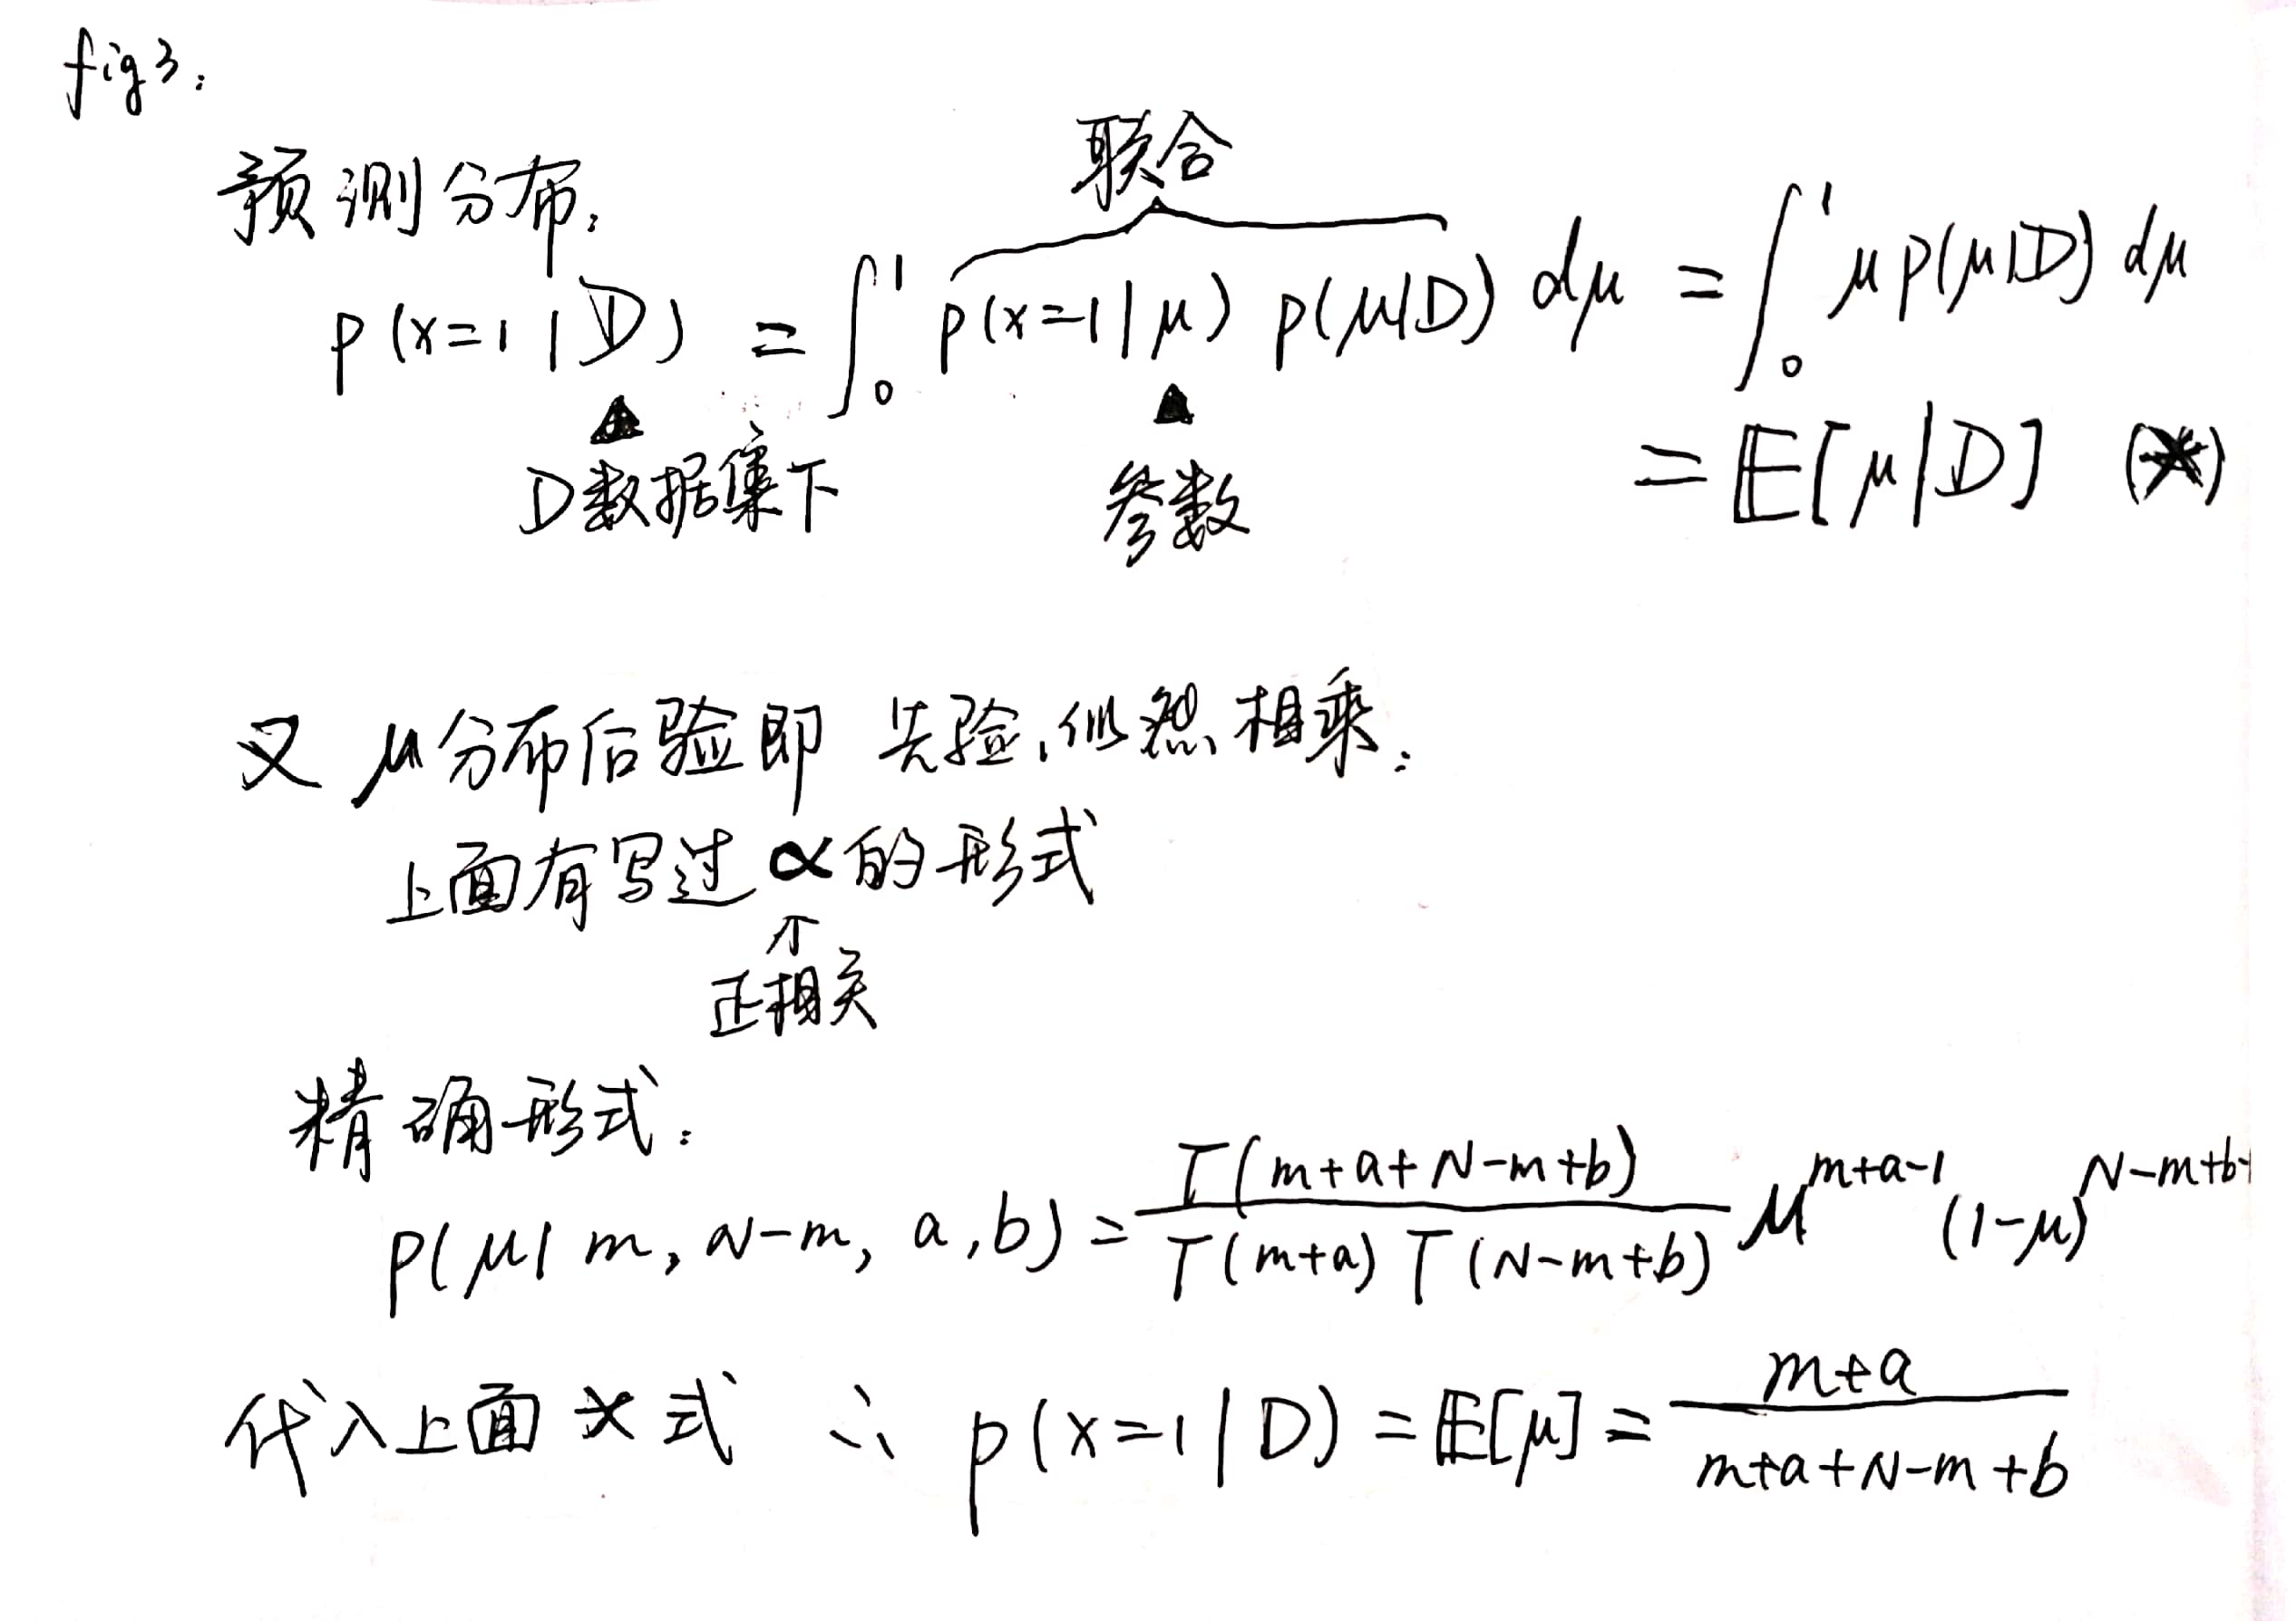 fig3:
联合
预测分布:
p(x=1|D) = ∫₀¹ p(x=1|μ) p(μ|D) dμ = ∫₀¹ μ p(μ|D) dμ
= 𝔼[μ|D] (*)
D数据集下 参数
又 μ分布后验即 先验、似然相乘:
上面有写过 ∝ 的形式
↑
正相关
精确形式:
p(μ| m, N-m, a, b) = Γ(m+a+N-m+b) / Γ(m+a) Γ(N-m+b) μ^{m+a-1} (1-μ)^{N-m+b-
代入上面 * 式 ∴ p(x=1|D) = 𝔼[μ] = m+a / m+a+N-m+b